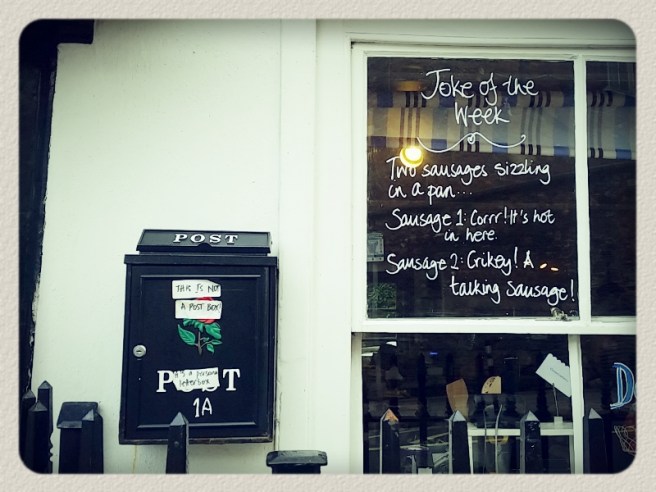 Joke of the
Week
Two sausages sizzling
in a pan...
Sausage 1: Corrr! It's hot
in here.
Sausage 2: Crikey! A
talking sausage!
POST
THIS IS NOT
A POST BOX
It's a personal
letterbox
POST
1A
D